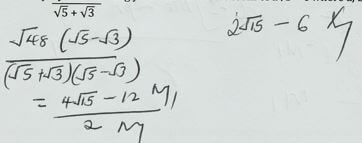 √5 + √3
√48 (√5-√3)
(√5+√3)(√5-√3)
= 4√15 - 12 M1
2
2√15 - 6